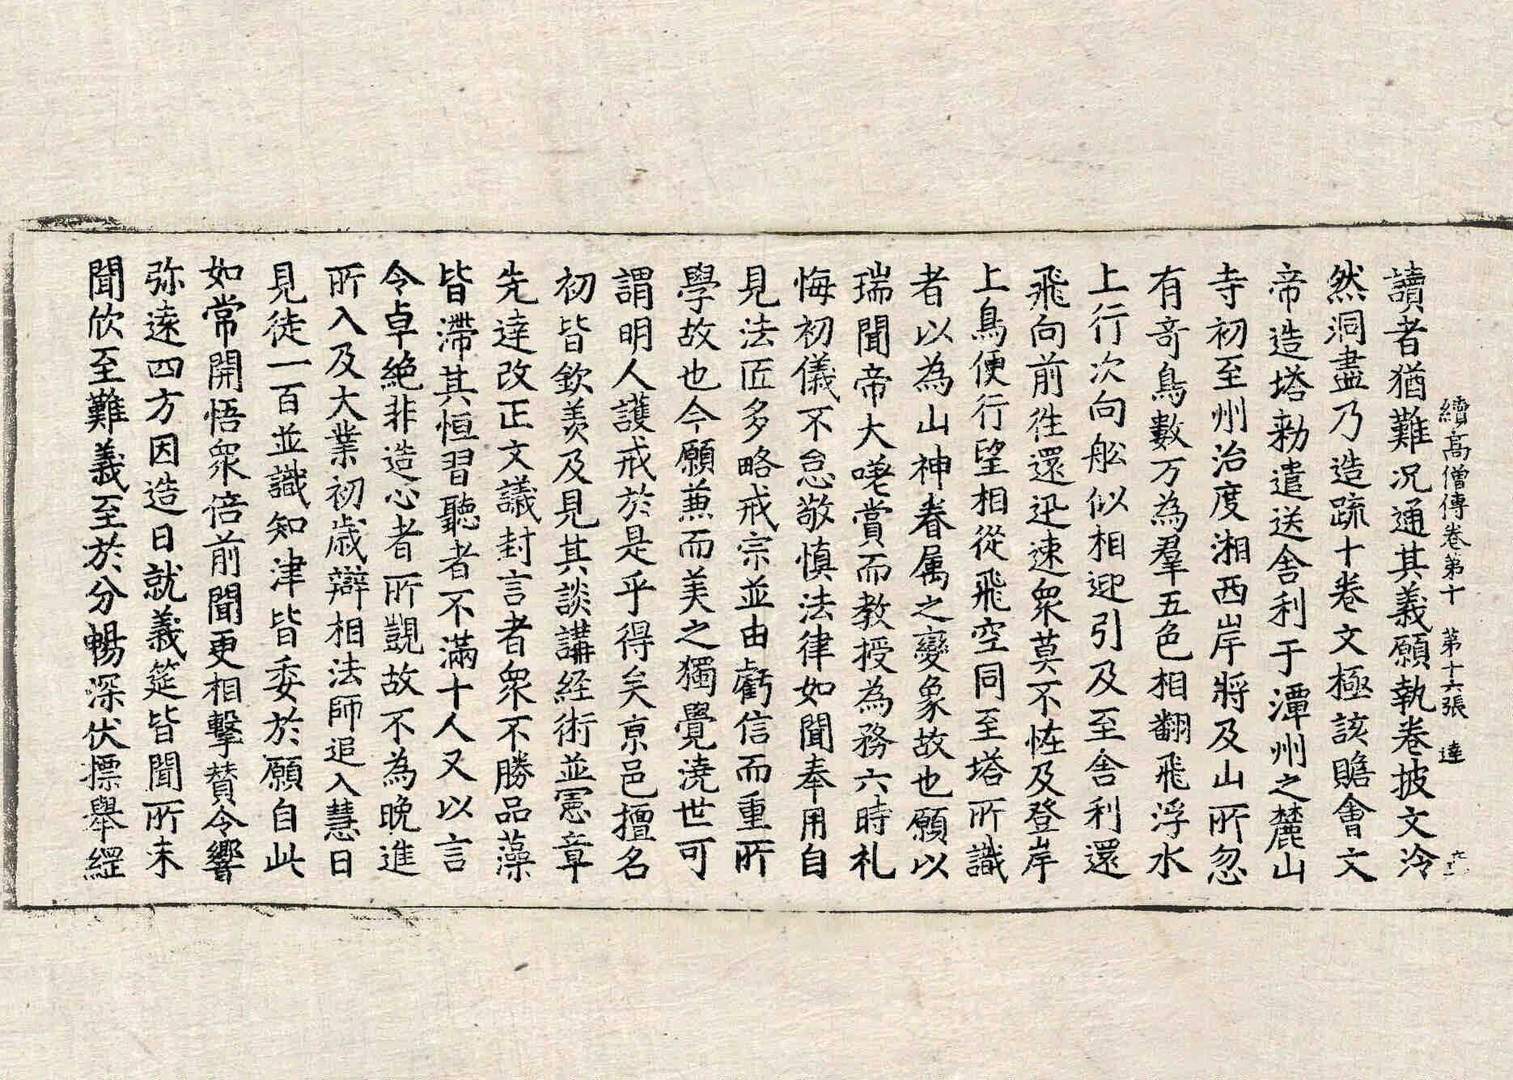 續高僧傳卷第十　第十六張　達
讀者猶難況通其義願執卷披文泠
然洞盡乃造疏十卷文極該贍會文
帝造塔勑遣送舍利于潭州之麓山
寺初至州治度湘西岸將及山所忽
有奇鳥數万為羣五色相翻飛浮水
上行次向舩似相迎引及至舍利還
飛向前往還迅速衆莫不恠及登岸
上鳥便行望相從飛空同至塔所識
者以為山神眷属之變象故也願以
瑞聞帝大嗟賞而教授為務六時札
悔初儀不怠敬慎法律如聞奉用自
見法匠多略戒宗並由虧信而重所
學故也今願兼而美之獨覺澆世可
謂明人護戒於是乎得矣京邑擅名
初皆欽羡及見其談講経術並憲章
先達改正文議封言者衆不勝品藻
皆滯其恒習聽者不滿十人又以言
令卓絶非造心者所覬故不為晩進
所入及大業初歲辯相法師追入慧日
見徒一百並識知津皆委於願自此
如常開悟衆倍前聞更相擊賛令響
弥遠四方因造日就義筵皆聞所未
聞欣至難義至於分暢深伏摽舉繹